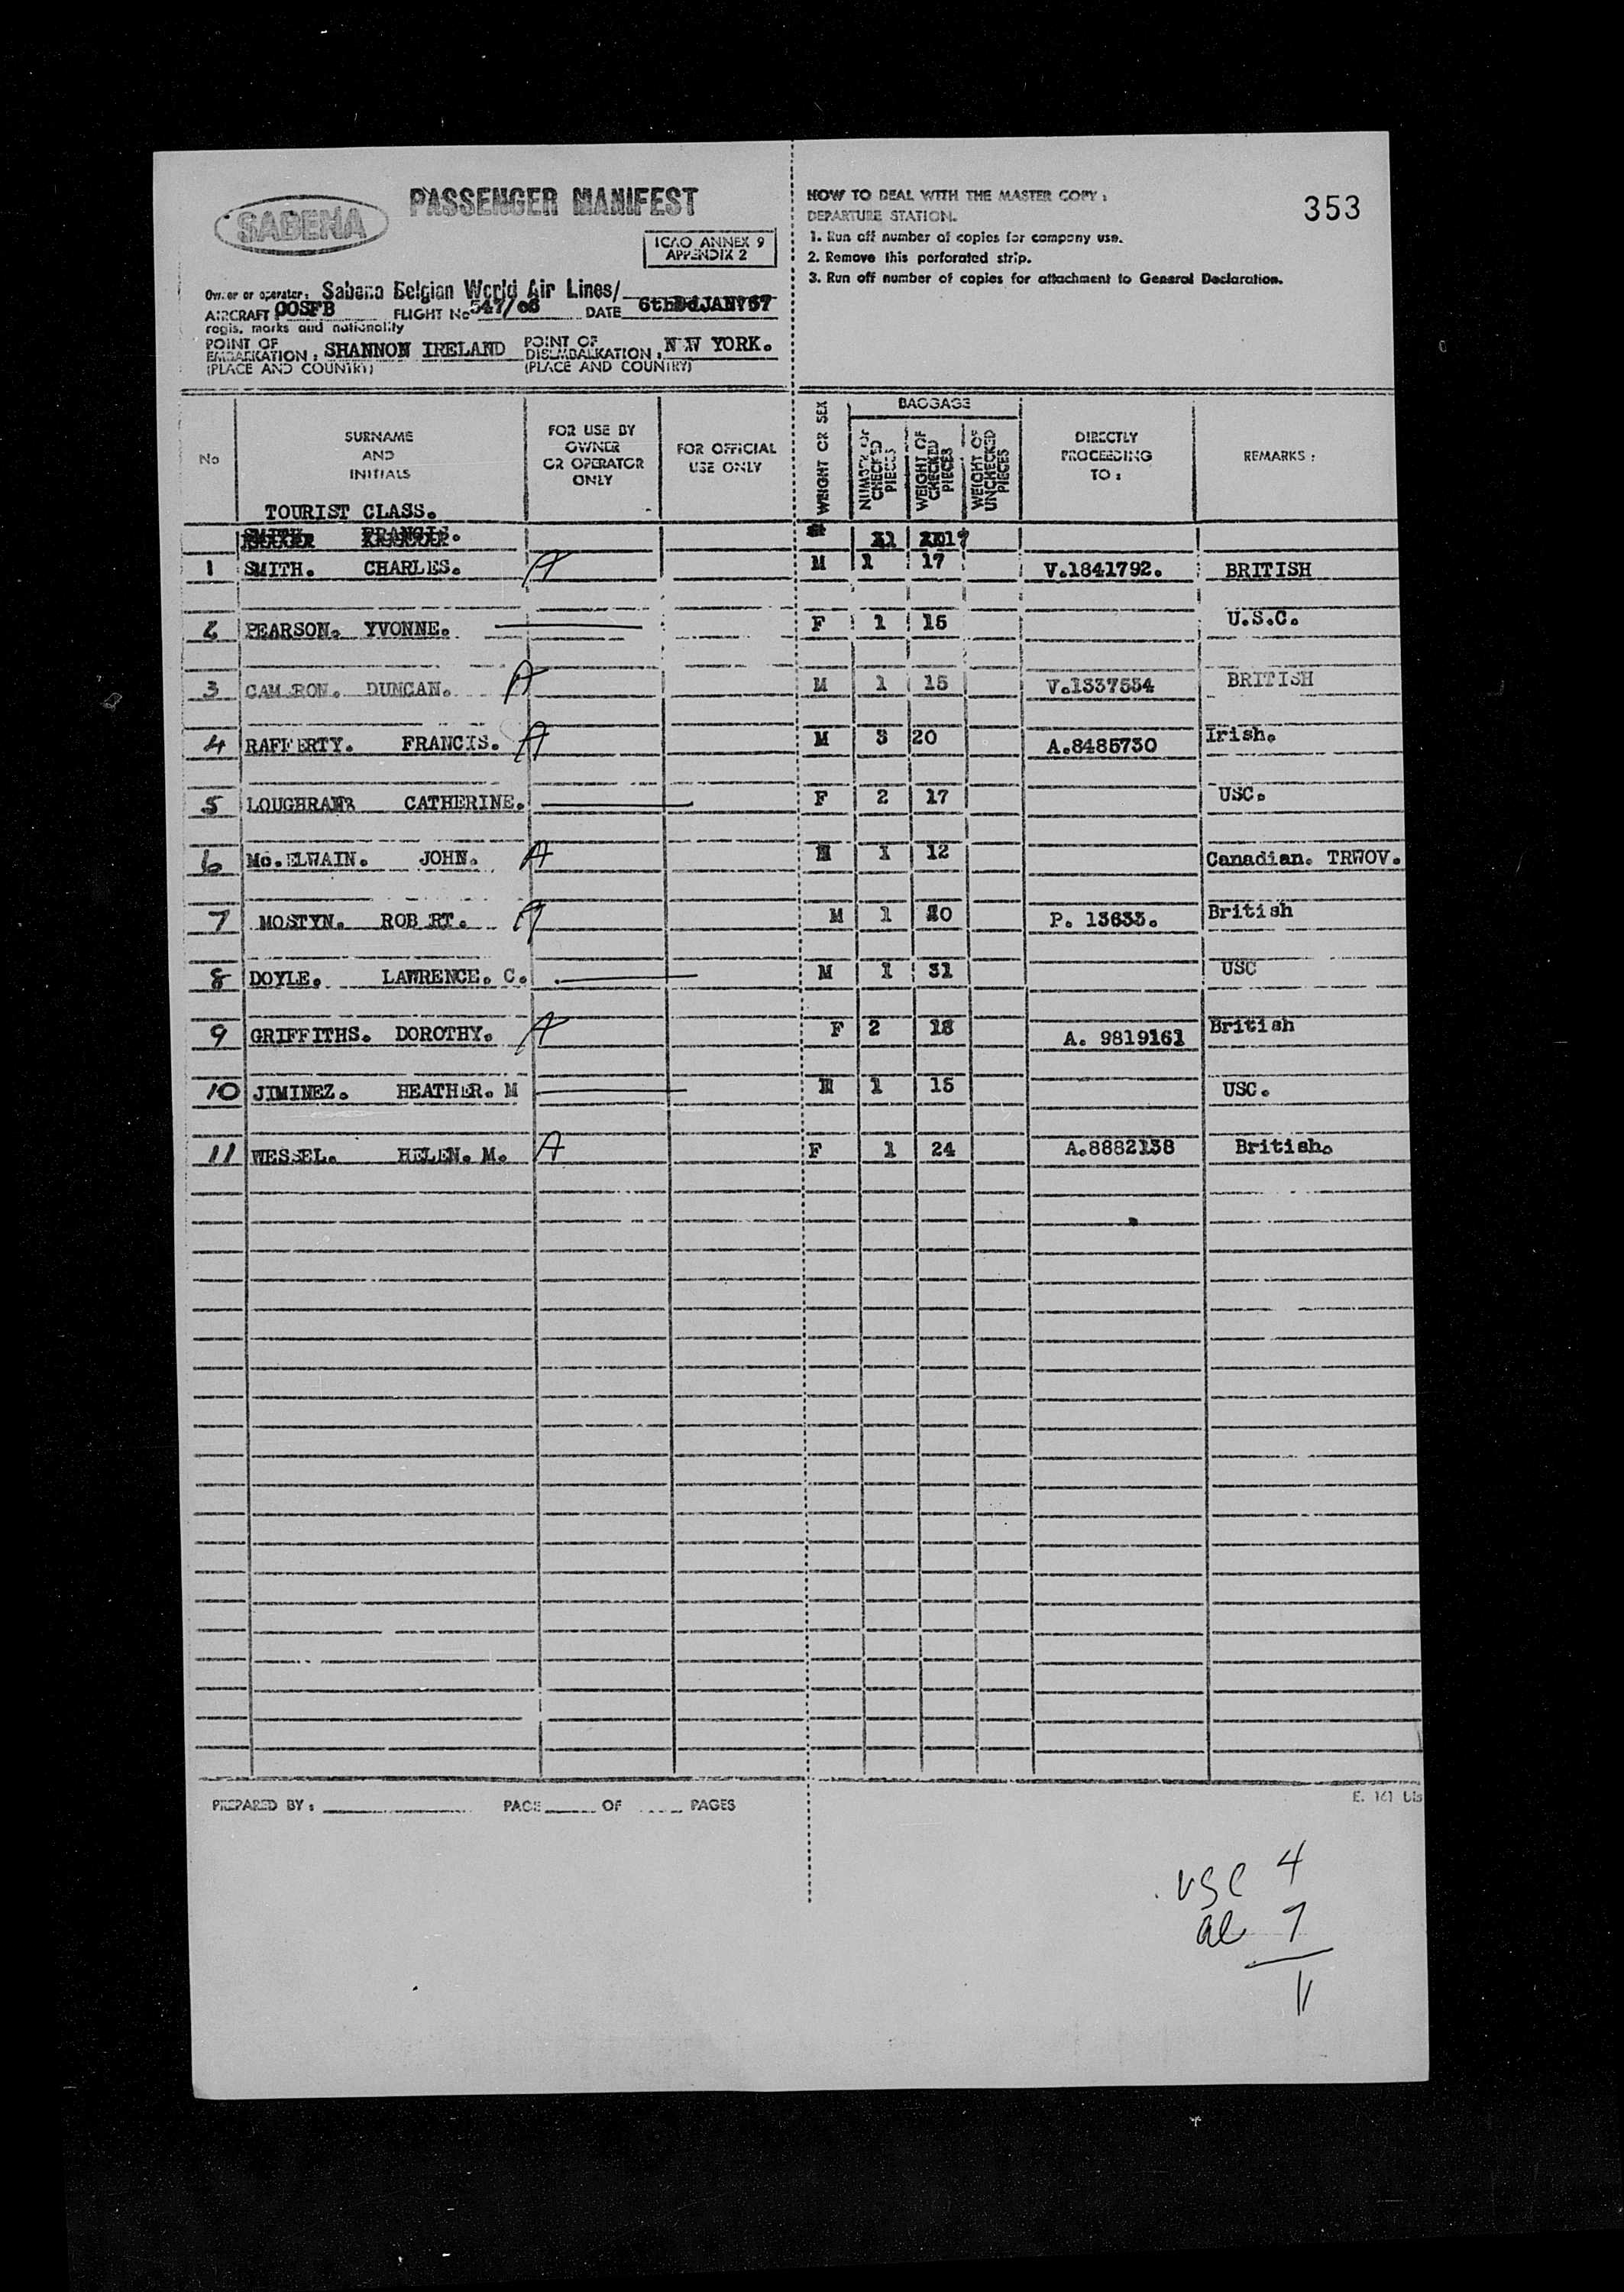 SABENA
PASSENGER MANIFEST
ICAO ANNEX 9
APPENDIX 2
Owner or operator: Sabena Belgian World Air Lines/
AIRCRAFT OOSFB FLIGHT No 547/06 DATE 6th JAN'57
regis. marks and nationality
POINT OF EMBARKATION: SHANNON IRELAND POINT OF DISEMBARKATION: NEW YORK.
(PLACE AND COUNTRY) (PLACE AND COUNTRY)
HOW TO DEAL WITH THE MASTER COPY:
DEPARTURE STATION.
1. Run off number of copies for company use.
2. Remove this perforated strip.
3. Run off number of copies for attachment to General Declaration.
353
No
SURNAME
AND
INITIALS
FOR USE BY
OWNER
OR OPERATOR
ONLY
FOR OFFICIAL
USE ONLY
WEIGHT OR SEX
BAGGAGE
NUMBER OF
CHECKED
PIECES
WEIGHT OF
CHECKED
PIECES
WEIGHT OF
UNCHECKED
PIECES
DIRECTLY
PROCEEDING
TO:
REMARKS:
TOURIST CLASS.
1 SMITH. CHARLES. A M 1 17 V.1841792. BRITISH
2 PEARSON. YVONNE. F 1 15 U.S.C.
3 CAM RON. DUNCAN. A M 1 15 V.1337554 BRITISH
4 RAFFERTY. FRANCIS. A M 3 20 A.8485730 Irish.
5 LOUGHRAN CATHERINE. F 2 17 USC.
6 Mc.ELWAIN. JOHN. A M 1 12 Canadian. TRWOV.
7 MOSTYN. ROB RT. A M 1 20 P. 13633. British
8 DOYLE. LAWRENCE. C. M 1 31 USC
9 GRIFFITHS. DOROTHY. A F 2 18 A. 9819161 British
10 JIMINEZ. HEATHER. M 1 15 USC.
11 WESSEL. HELEN. M. A F 1 24 A.8882138 British.
PREPARED BY: PAGE OF PAGES
E. 161 bis
USC 4
al 7
11